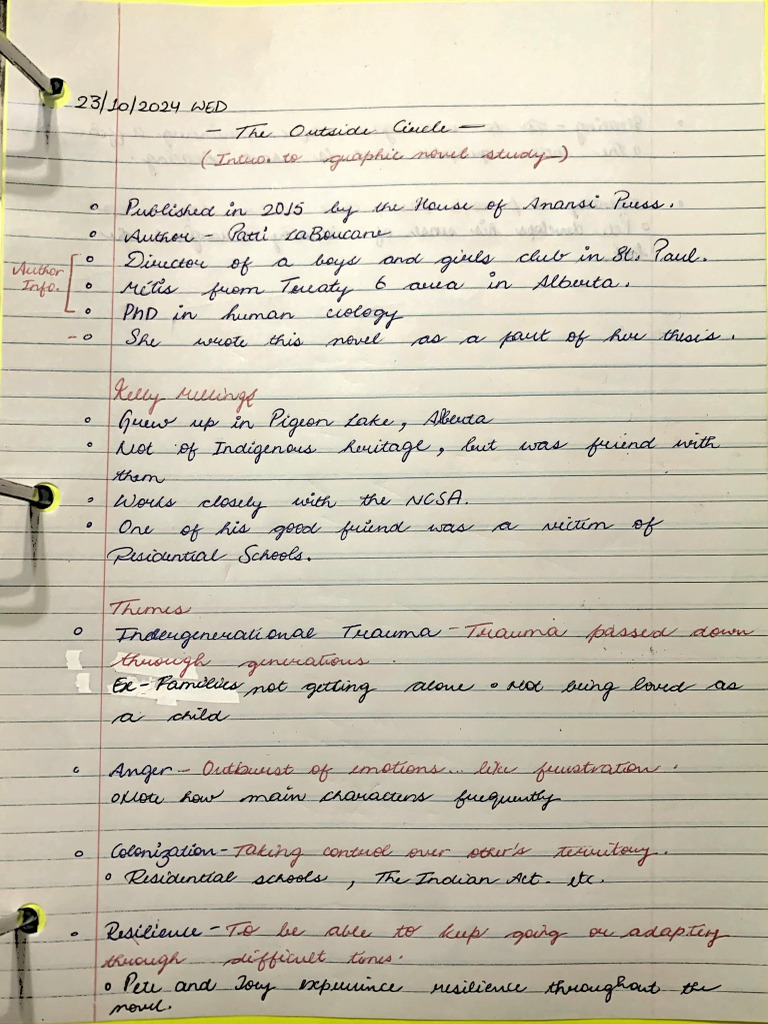 23/10/2024 WED
- The Outside Circle -
(Intro. to graphic novel study)
Published in 2015 by the House of Anansi Press.
Author - Patti LaBoucane
Director of a boys and girls club in St. Paul.
Author Info.
Métis from Treaty 6 area in Alberta.
PhD in human cology
She wrote this novel as a part of her thesis.
Kelly Mellings
Grew up in Pigeon Lake, Alberta
Not of Indigenous heritage, but was friend with
them
Works closely with the NCSA.
One of his good friend was a victim of
Residential Schools.
Themes
Indergenerational Trauma - Trauma passed down
through generations.
Ex - Families not getting alone • Not being loved as
a child
Anger - Outburst of emotions... like frustration.
Note how main characters frequently
Colonization - Taking control over other's territory.
Residential schools, The Indian Act. etc.
Resilience - To be able to keep going or adapting
through difficult times.
Pete and Joey experience resilience throughout the
novel.